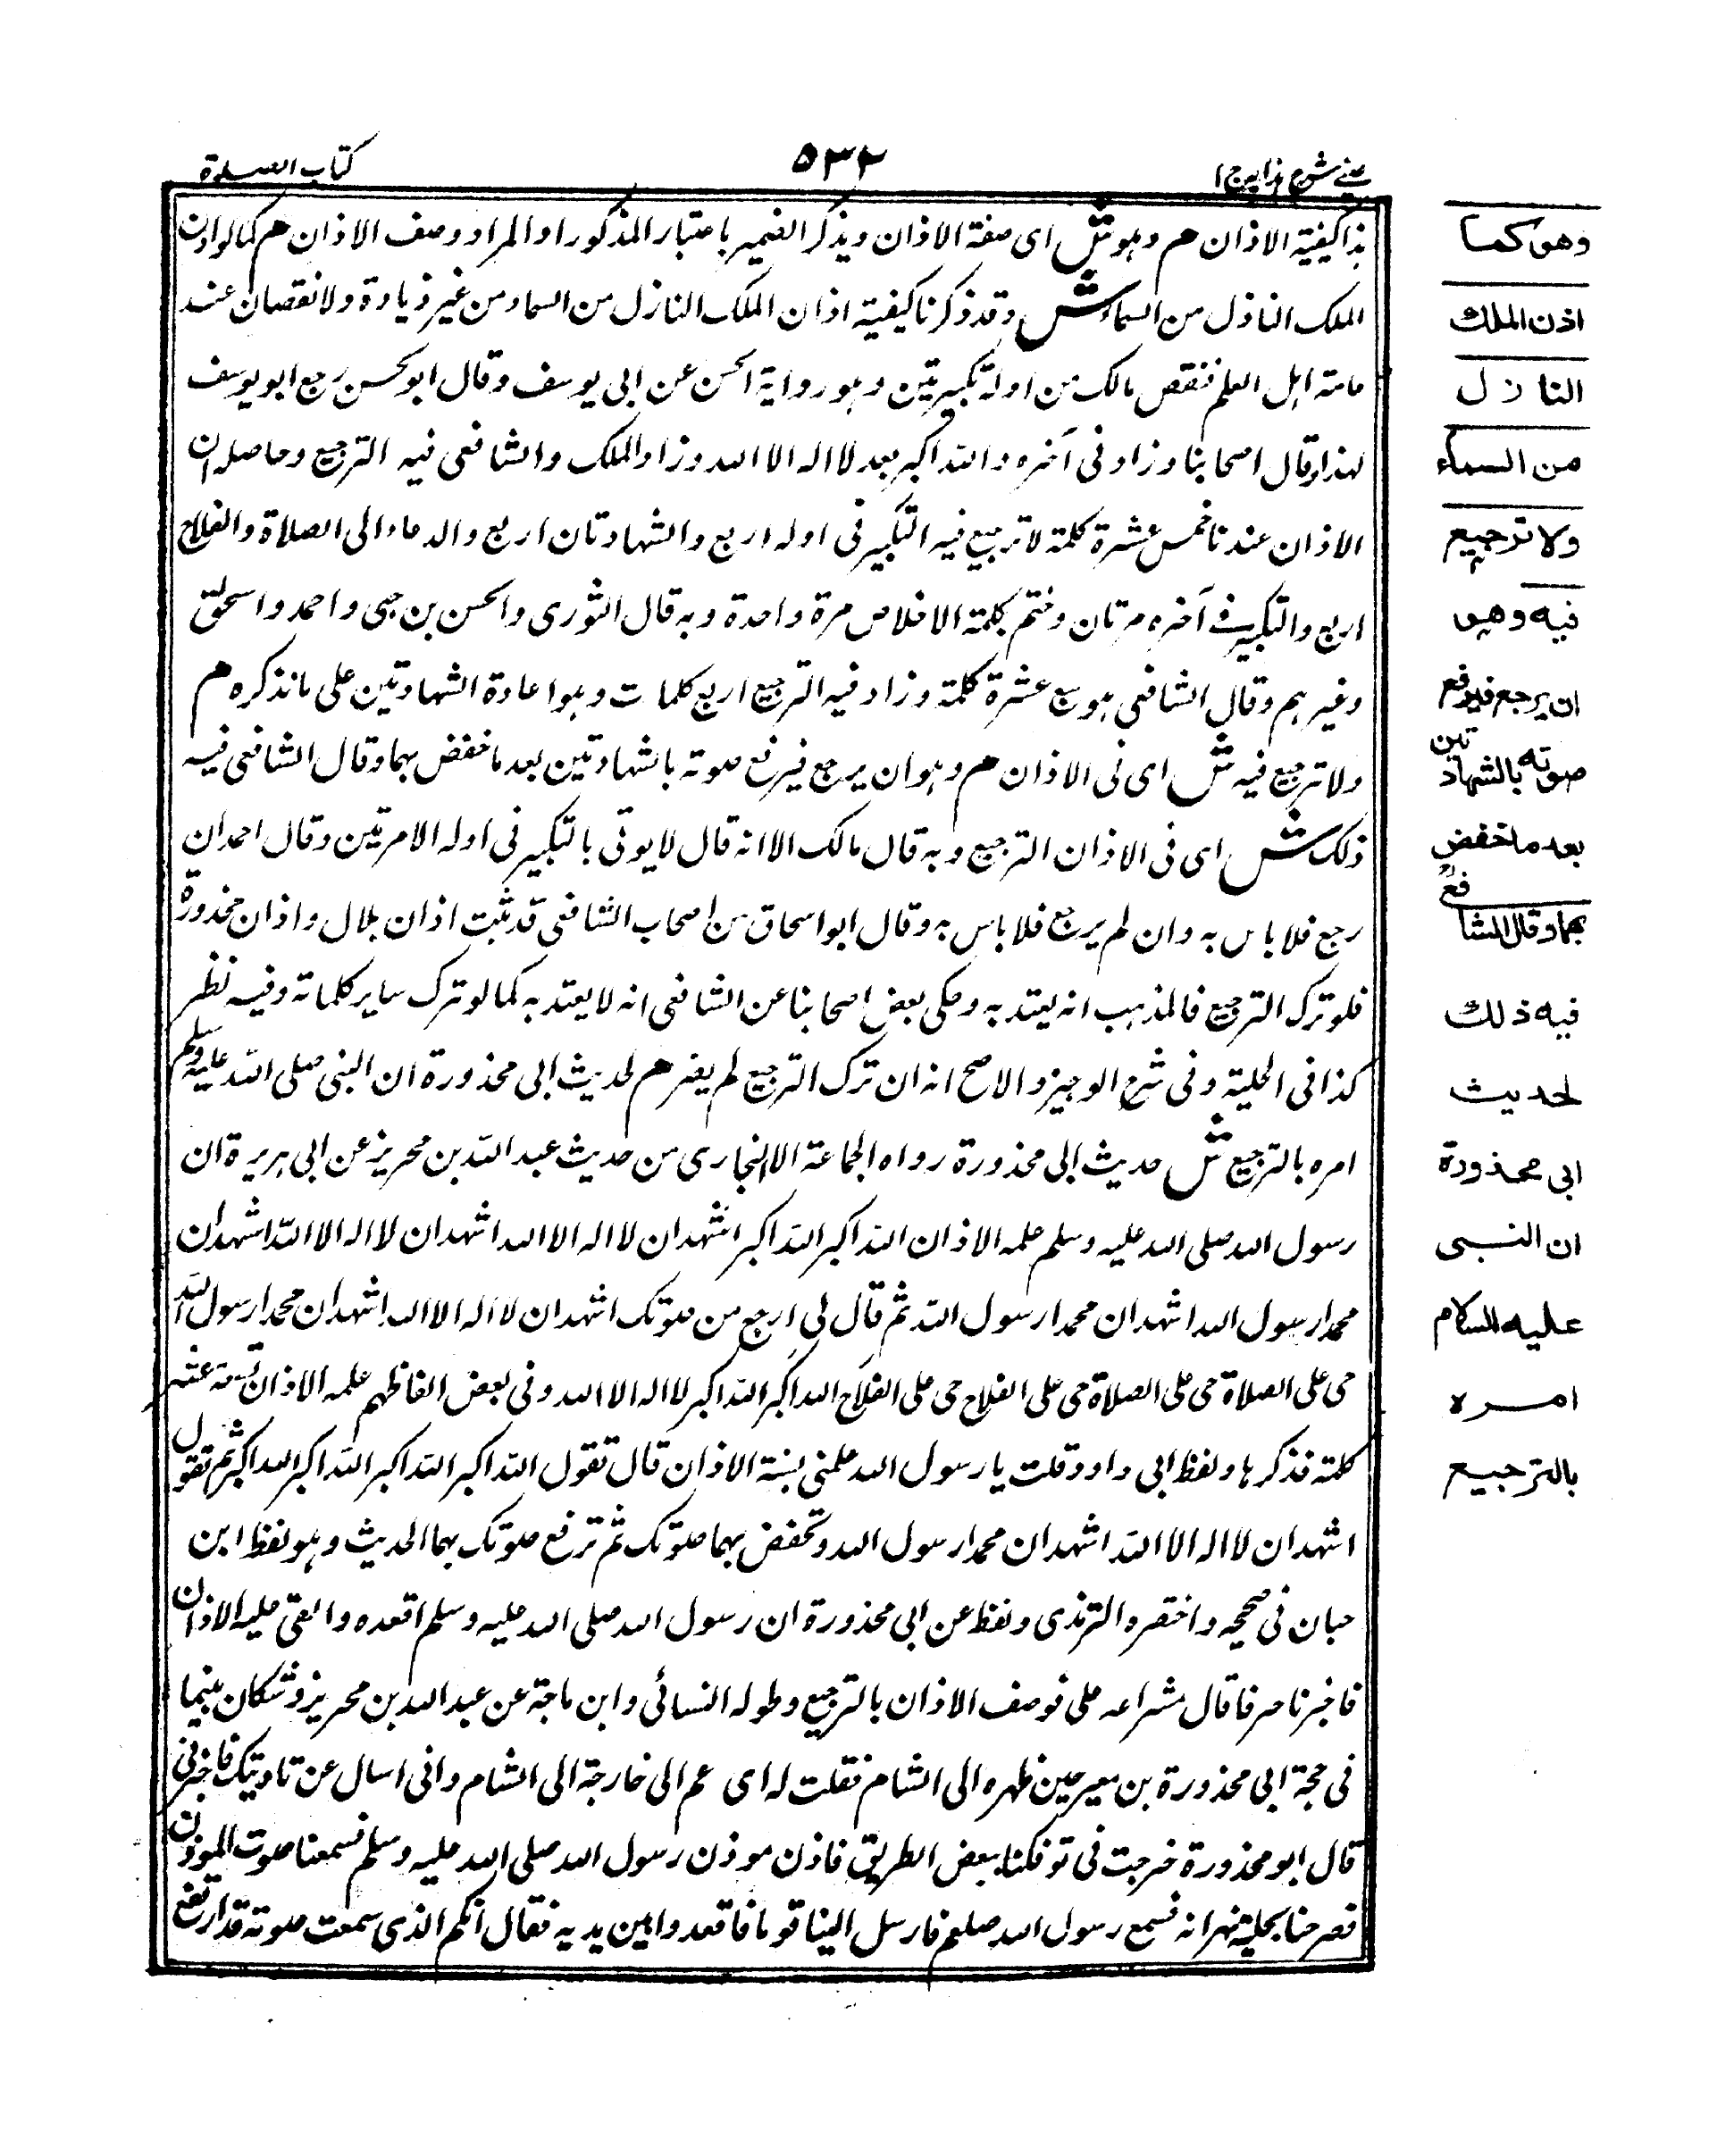 عينى شرح هدايه ج ا
٥٣٢
كتاب الصلاة
هذا كيفية الاذان هم وهو ش اى صفة الاذان ويذكر الضمير باعتبار المذكور او المراد وصف الاذان هم كما لو اذن
الملك النازل من السماء ش وقد ذكرنا كيفية اذان الملك النازل من السماء من غير زيادة ولا نقصان عند
عامة اهل العلم فنقص مالك من اوله تكبيرتين وهو رواية الحسن عن ابى يوسف وقال ابو الحسن رجع ابو يوسف
لهذا وقال اصحابنا وزاد فى آخره والله اكبر بعد لا اله الا الله وزاد والملك والشافعى فيه الترجيع وحاصله ان
الاذان عندنا خمس عشرة كلمة لا ترجيع فيه التكبير فى اوله اربع والشهادتان اربع والدعاء الى الصلاة والفلاح
اربع والتكبير فى آخره مرتان وختم بكلمة الاخلاص مرة واحدة وبه قال الثورى والحسن بن حيى واحمد واسحق
وغيرهم وقال الشافعى هو سبع عشرة كلمة وزاد فيه الترجيع اربع كلمات وهو اعادة الشهادتين على ما نذكره هم
ولا ترجيع فيه ش اى فى الاذان هم وهو ان يرجع فيرفع صوته بالشهادتين بعد ما خفض بهما وقال الشافعى فيه
ذلك ش اى فى الاذان الترجيع وبه قال مالك الا انه قال لا يوتى بالتكبير فى اوله الا مرتين وقال احمد ان
رجع فلا باس به وان لم يرجع فلا باس به وقال ابو اسحاق من اصحاب الشافعى قد ثبت اذان بلال واذان محذورة
فلو ترك الترجيع فالمذهب انه يعتد به وحكى بعض اصحابنا عن الشافعى انه لا يعتد به كما لو ترك ساير كلماته وفيه نظر
كذا فى الحلية وفى شرح الوجيز والاصح انه ان ترك الترجيع لم يضر هم لحديث ابى محذورة ان النبى صلى الله عليه وسلم
امره بالترجيع ش حديث ابى محذورة رواه الجماعة الا البخارى من حديث عبد الله بن محريز عن ابى هريرة ان
رسول الله صلى الله عليه وسلم علمه الاذان الله اكبر الله اكبر اشهد ان لا اله الا الله اشهد ان لا اله الا الله اشهد ان
محمدا رسول الله اشهد ان محمدا رسول الله ثم قال لى ارجع من صوتك اشهد ان لا اله الا الله اشهد ان محمدا رسول الله
حى على الصلاة حى على الصلاة حى على الفلاح حى على الفلاح الله اكبر الله اكبر لا اله الا الله وفى بعض الفاظهم علمه الاذان تسعة عشر
كلمة فذكرها ولفظ ابى داود وقلت يا رسول الله علمنى سنة الاذان قال تقول الله اكبر الله اكبر الله اكبر الله اكبر ثم تقول
اشهد ان لا اله الا الله اشهد ان محمدا رسول الله وتخفض بهما صوتك ثم ترفع صوتك بهما الحديث وهو لفظ ابن
حبان فى صحيحه واختصره الترمذى ولفظ عن ابى محذورة ان رسول الله صلى الله عليه وسلم اقعده والقى عليه الاذان
فا حرفا قال بشر اعده على فوصف الاذان بالترجيع وطوله النسائى وابن ماجة عن عبد الله بن محريز وكان يتيما
فى حجة ابى محذورة بن معير حين ظهره الى الشام فقلت له اى عم الى خارجة الى الشام وانى اسال عن تاوتيك فاخبرنى
قال ابو محذورة خرجت فى فكنا ببعض الطريق فاذن موذن رسول الله صلى الله عليه وسلم فسمعنا صوت الموذن
فصرخنا فسمع رسول الله صلعم فارسل الينا قوما فاقعدوا بين يديه فقال ايكم الذى سمعت صوته قد ارتفع
وهو كما
اذن الملك
النازل
من السماء
ولا ترجيع
فيه وهو
ان يرجع فيرفع
صوته بالشهادتين
بعد ما خفض
بهما وقال الشافعى
فيه ذلك
لحديث
ابى محذورة
ان النبى
عليه السلام
امره
بالترجيع